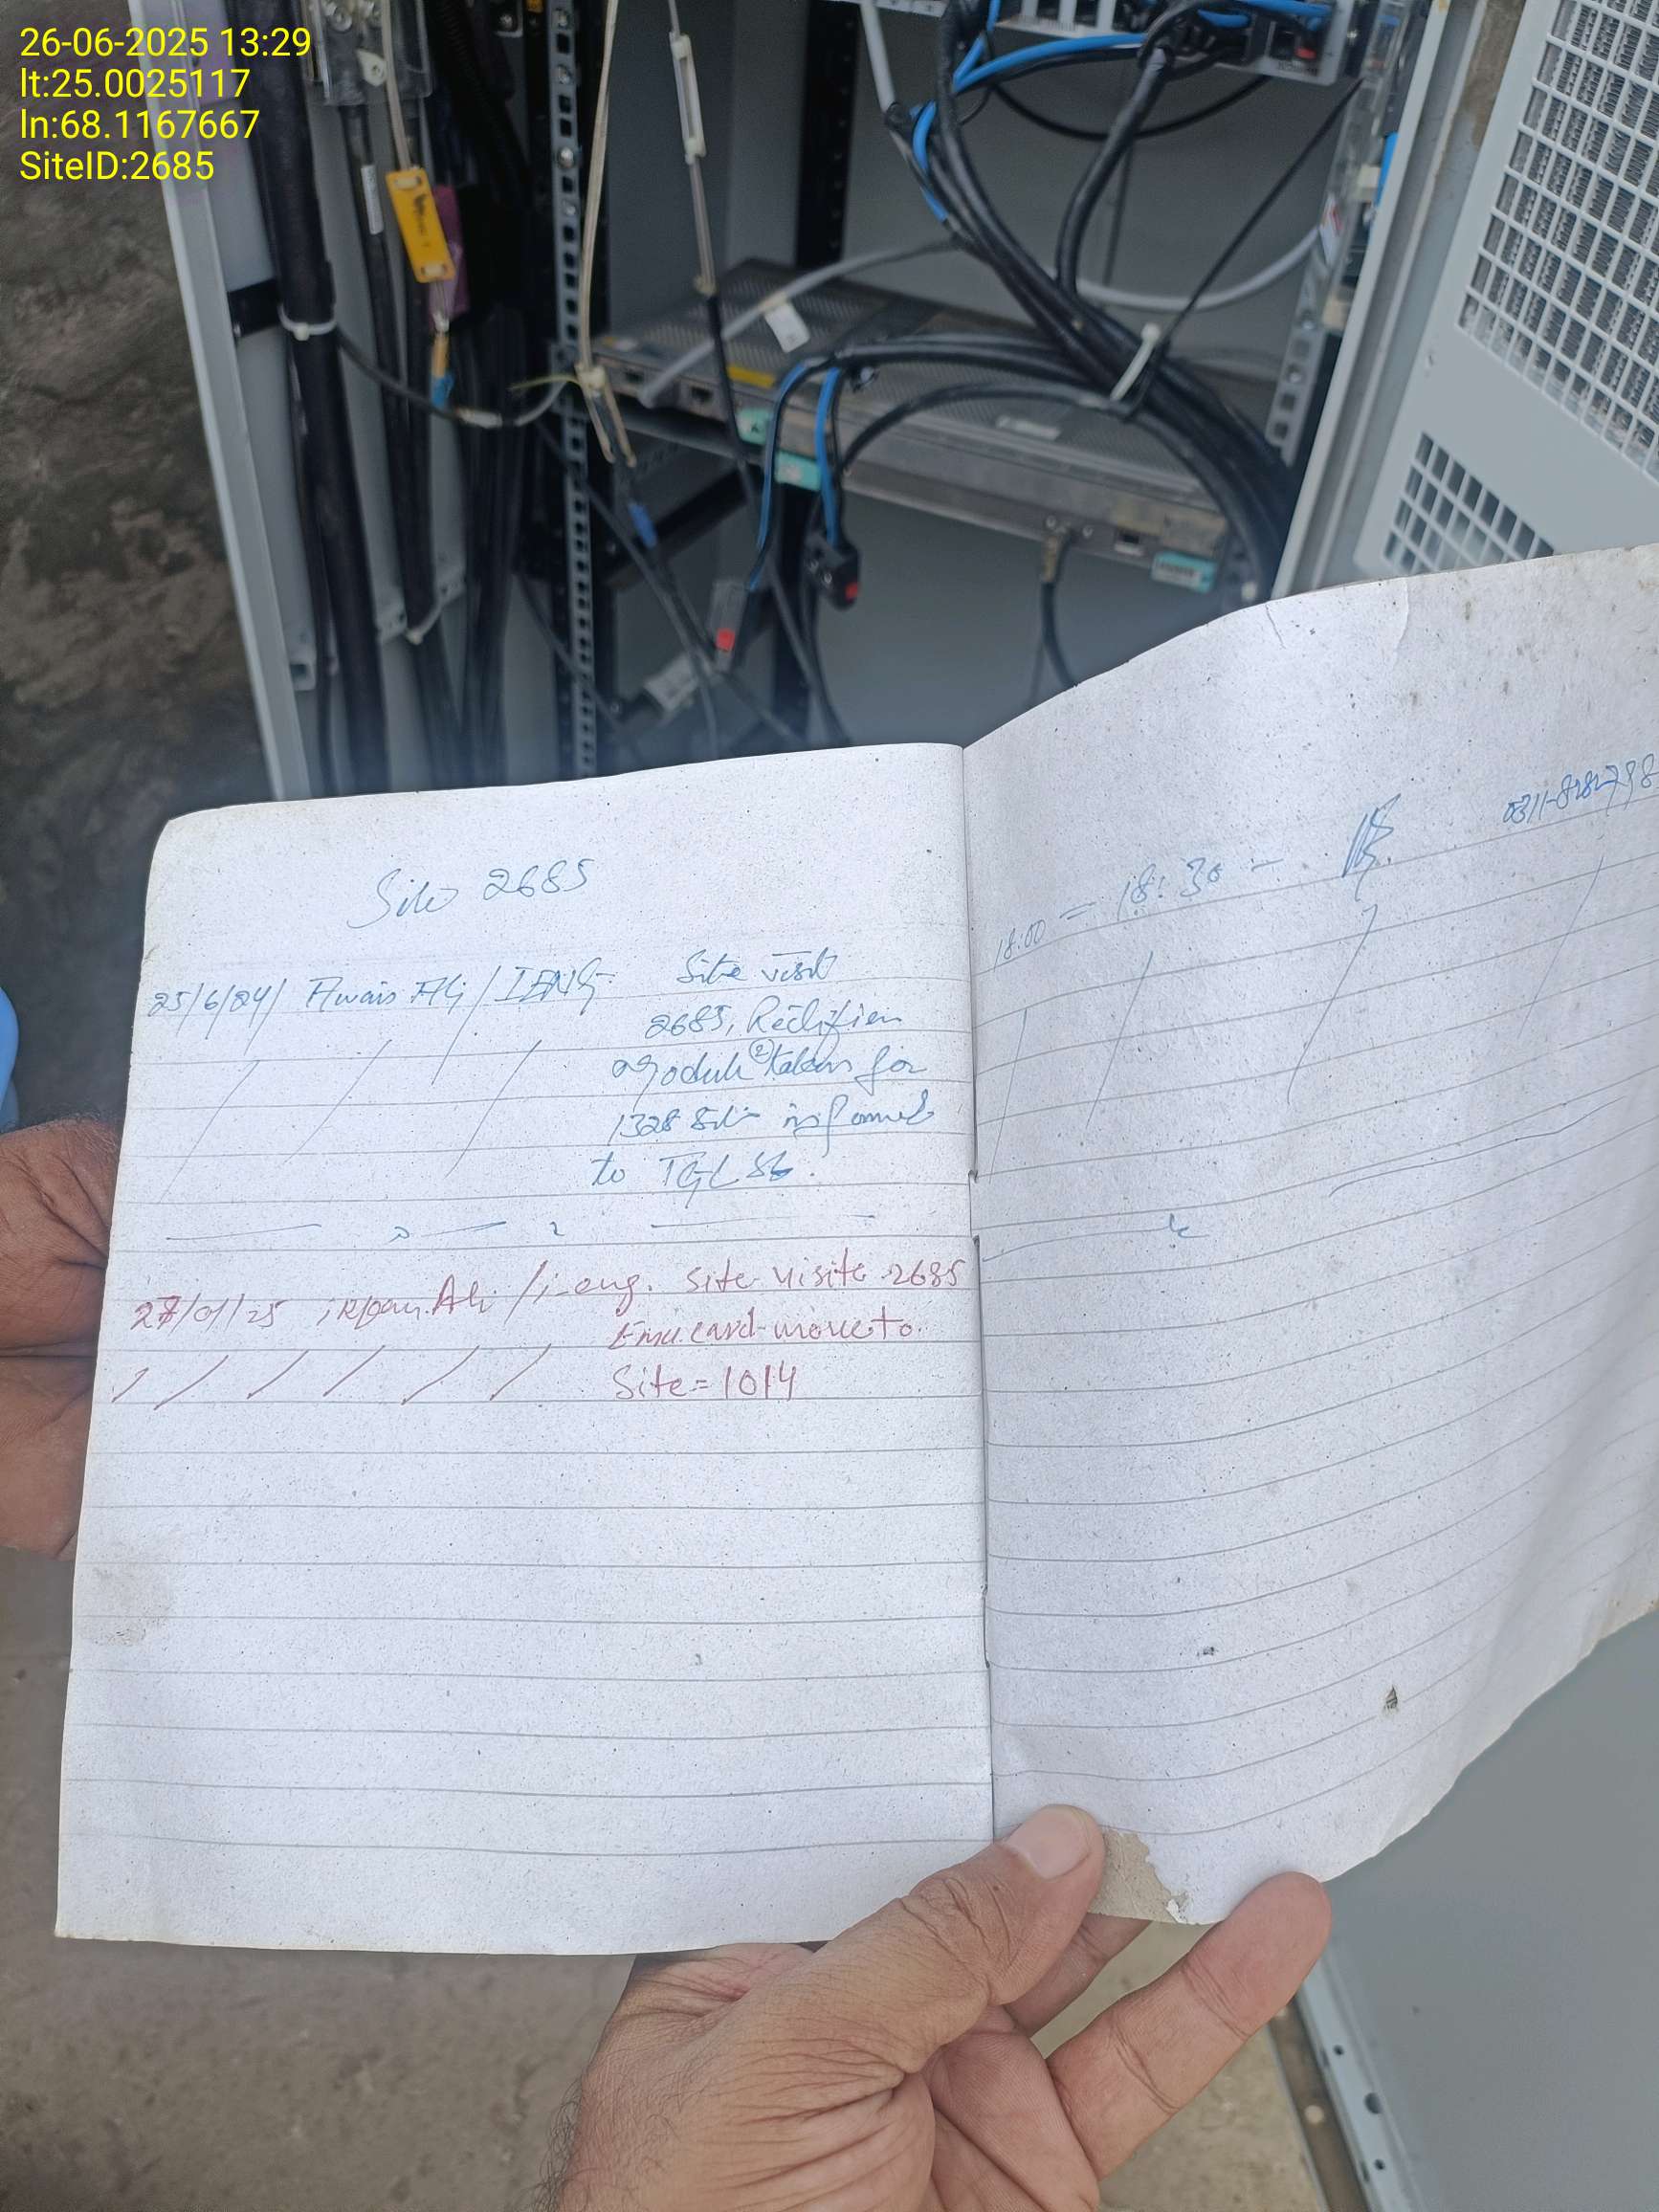 26-06-2025 13:29
lt:25.0025117
ln:68.1167667
SiteID:2685
Site 2685
25/6/24/ Awais Ali / IENG- Site visit
2685, Rectifier
Module (2) taken for
1328 Site informed
to
27/01/25 Ali / i-eng. Site visite 2685
Emu card move to
Site = 1014
18:00 = 18:30 -